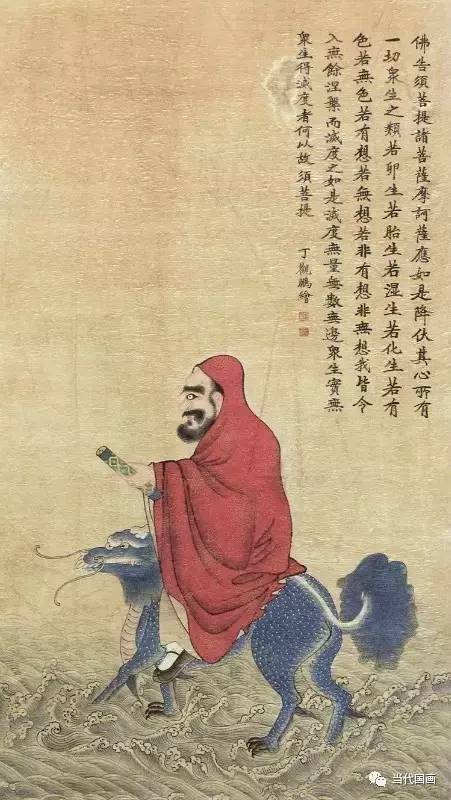 佛告須菩提諸菩薩摩訶薩應如是降伏其心所有
一切衆生之類若卵生若胎生若湿生若化生若有
色若無色若有想若無想若非有想非無想我皆令
入無餘涅槃而滅度之如是滅度無量無數無邊衆生實無
衆生得滅度者何以故須菩提
丁觀鵬繪
当代国画